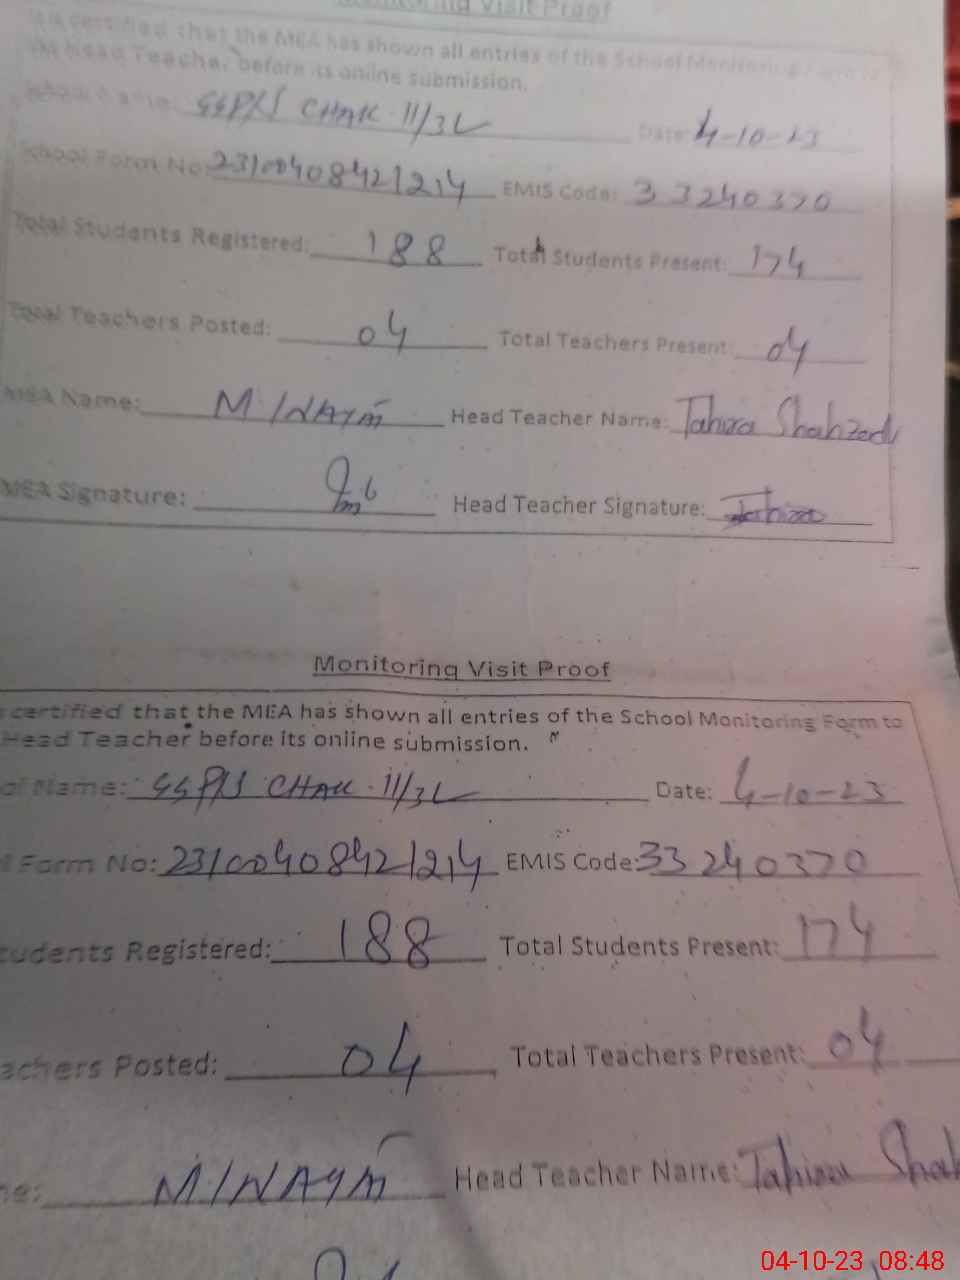 Monitoring Visit Proof
It is certified that the MEA has shown all entries of the School Monitoring Form to
the Head Teacher before its online submission.
School Name: GGP/S CHAK 11/3L Date: 4-10-23
School Form No: 23100408421214 EMIS Code: 33240370
Total Students Registered: 188 Total Students Present: 174
Total Teachers Posted: 04 Total Teachers Present: 04
MEA Name: M/NAYM Head Teacher Name: Tahira Shahzadi
MEA Signature: Head Teacher Signature: Tahira
Monitoring Visit Proof
certified that the MEA has shown all entries of the School Monitoring Form to
Head Teacher before its online submission.
ol Name: GGP/S CHAK 11/3L Date: 4-10-23
l Form No: 23100408421214 EMIS Code: 33240370
tudents Registered: 188 Total Students Present: 174
achers Posted: 04 Total Teachers Present: 04
ne: Head Teacher Name: Tahira Shah
04-10-23 08:48